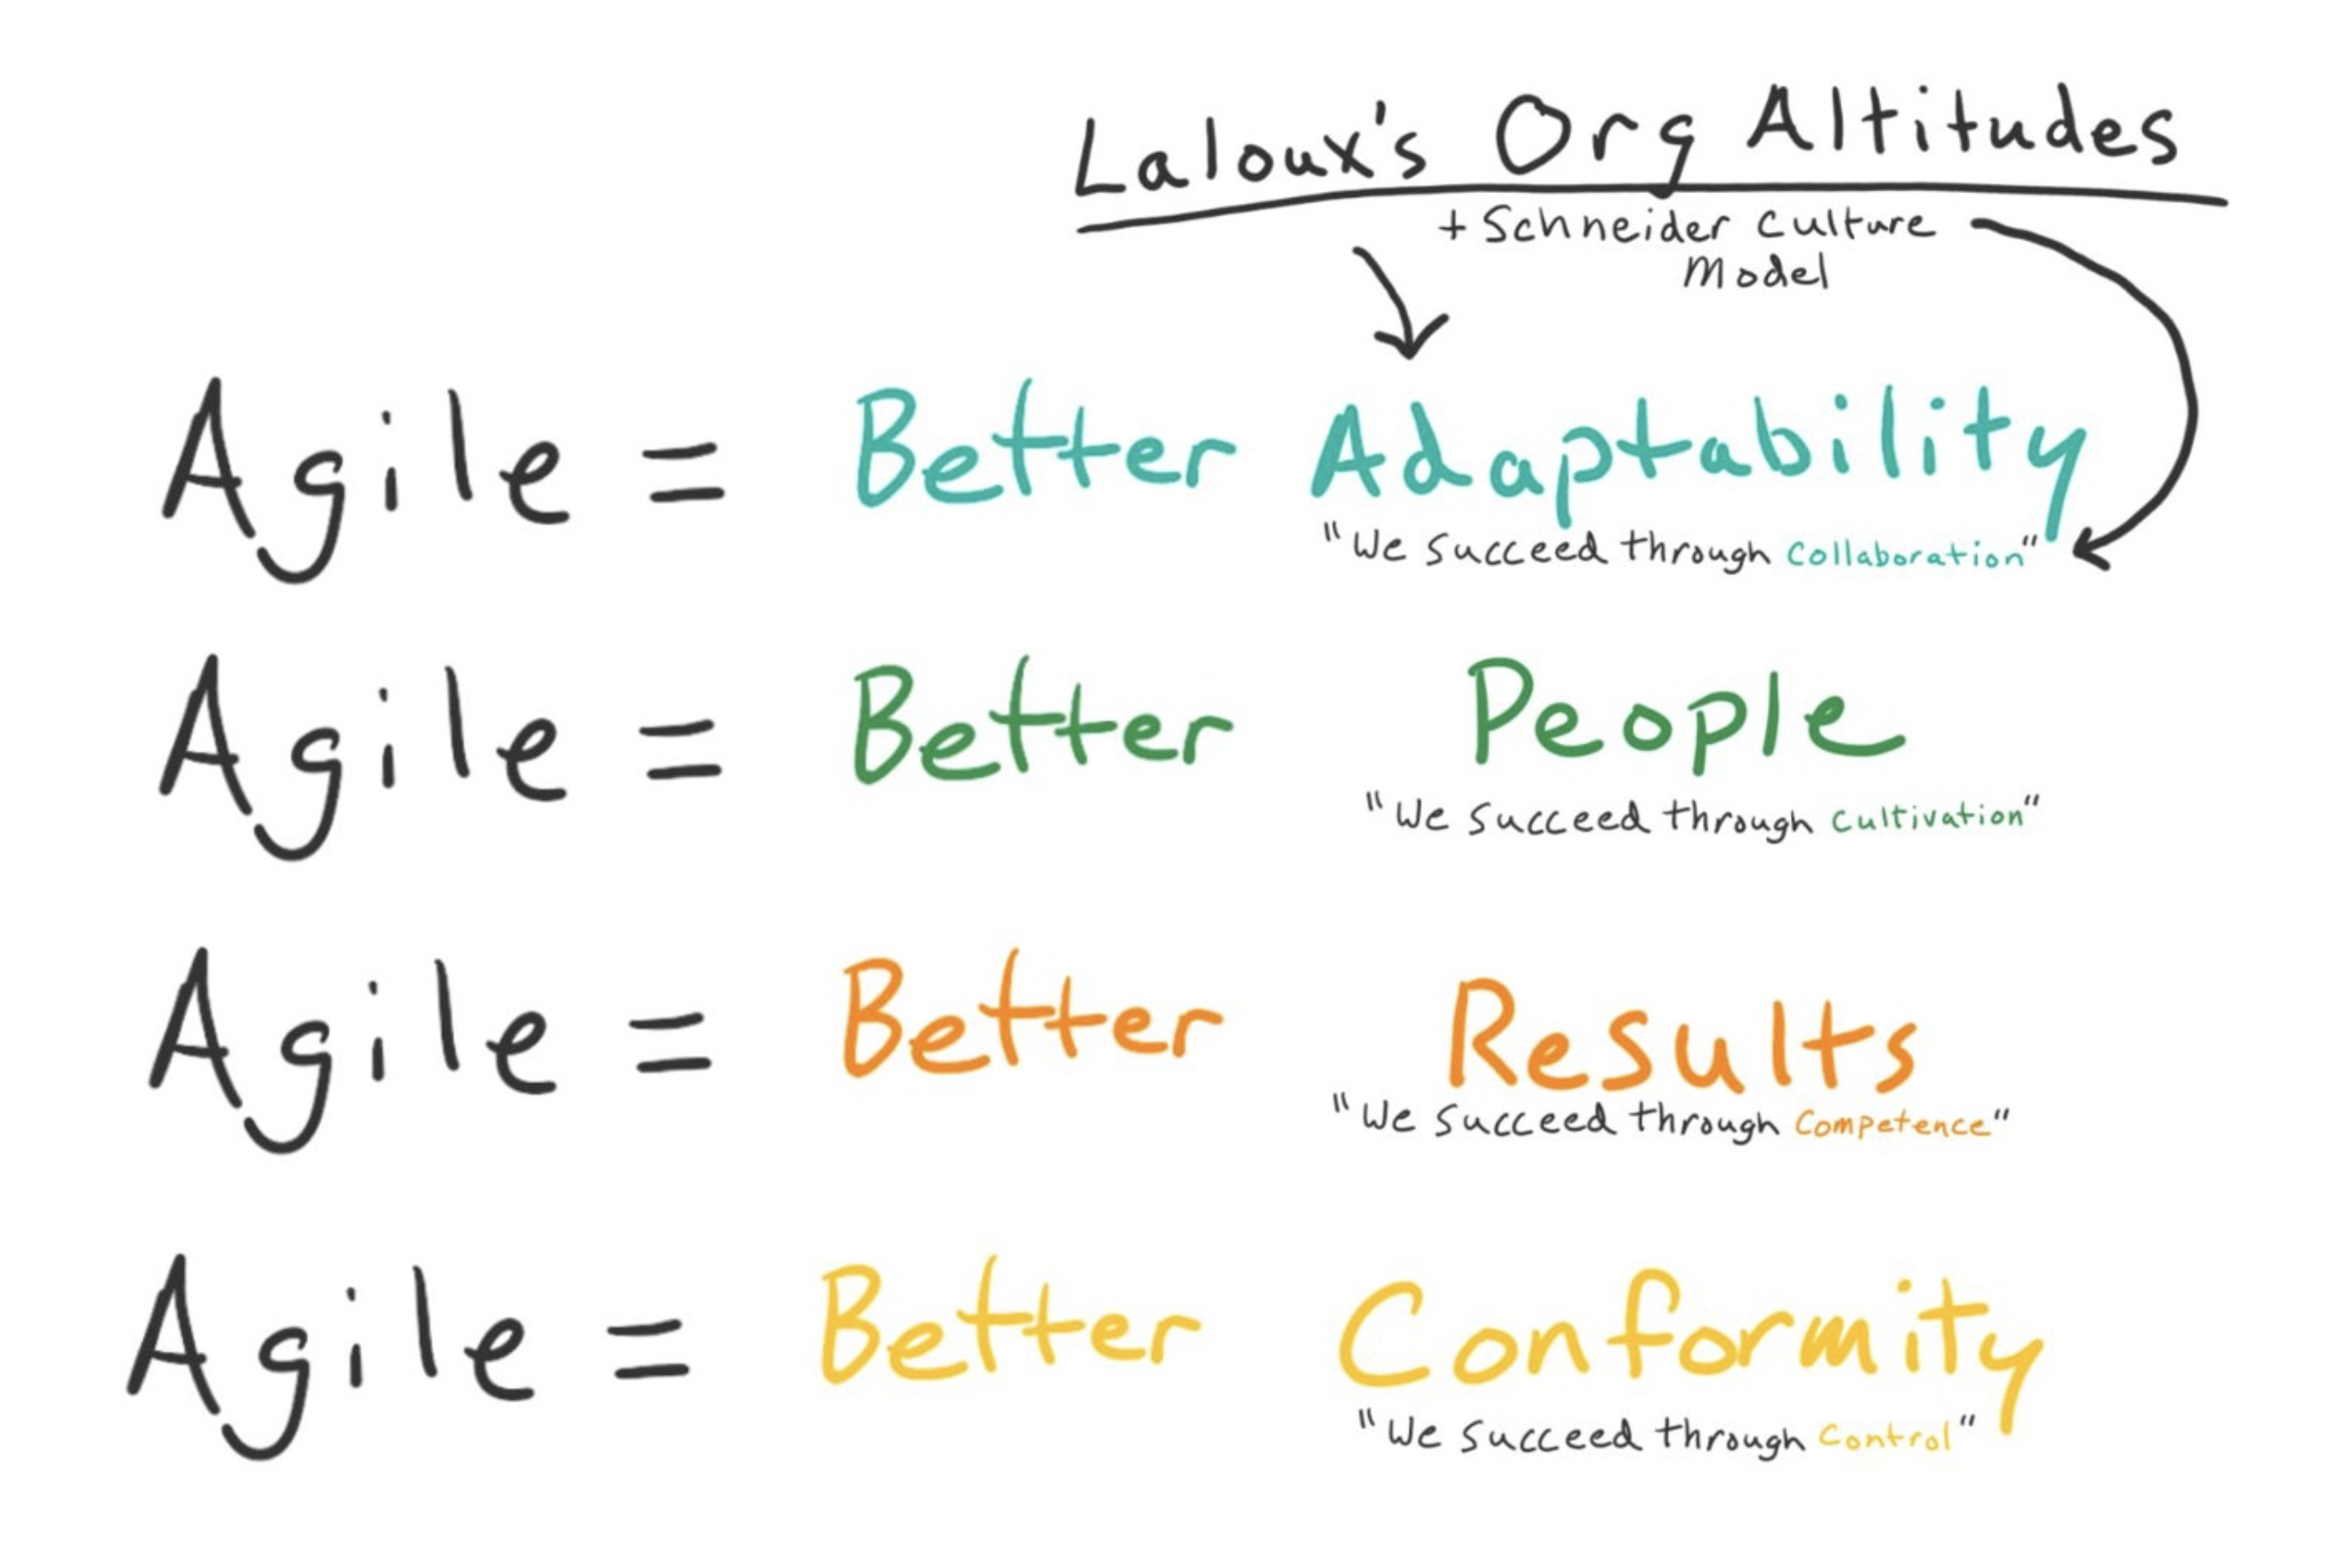 Laloux's Org Altitudes
+ Schneider Culture
Model
Agile = Better Adaptability
"We succeed through Collaboration"
Agile = Better People
"We succeed through Cultivation"
Agile = Better Results
"We succeed through Competence"
Agile = Better Conformity
"We succeed through Control"